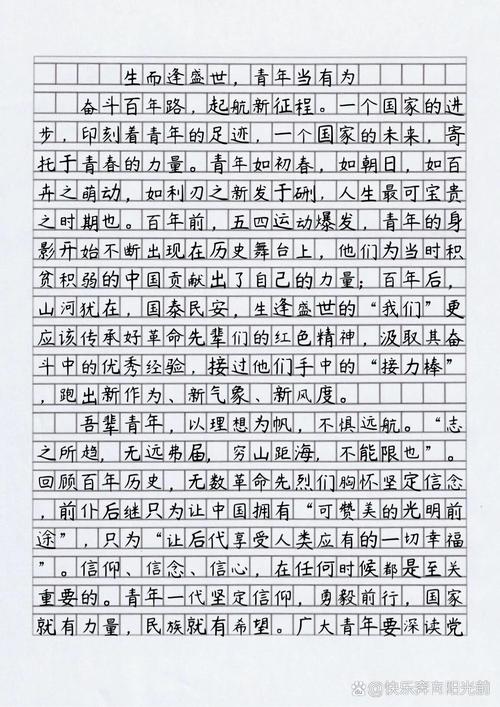 生而逢盛世，青年当有为
奋斗百年路，起航新征程。一个国家的进
步，印刻着青年的足迹，一个国家的未来，寄
托于青春的力量。青年如初春，如朝日，如百
卉之萌动，如利刃之新发于硎，人生最可宝贵
之时期也。百年前，五四运动爆发，青年的身
影开始不断出现在历史舞台上，他们为当时积
贫积弱的中国贡献出了自己的力量；百年后，
山河犹在，国泰民安，生逢盛世的“我们”更
应该传承好革命先辈们的红色精神，汲取其奋
斗中的优秀经验，接过他们手中的“接力棒”
，跑出新作为、新气象、新风度。
吾辈青年，以理想为帆，不惧远航。“志
之所趋，无远弗届，穷山距海，不能限也”。
回顾百年历史，无数革命先烈们胸怀坚定信念
，前仆后继只为让中国拥有“可赞美的光明前
途”，只为“让后代享受人类应有的一切幸福
”。信仰、信念、信心，在任何时候都是至关
重要的。青年一代坚定信仰，勇毅前行，国家
就有力量，民族就有希望。广大青年要深读党
快乐奔向阳光龄